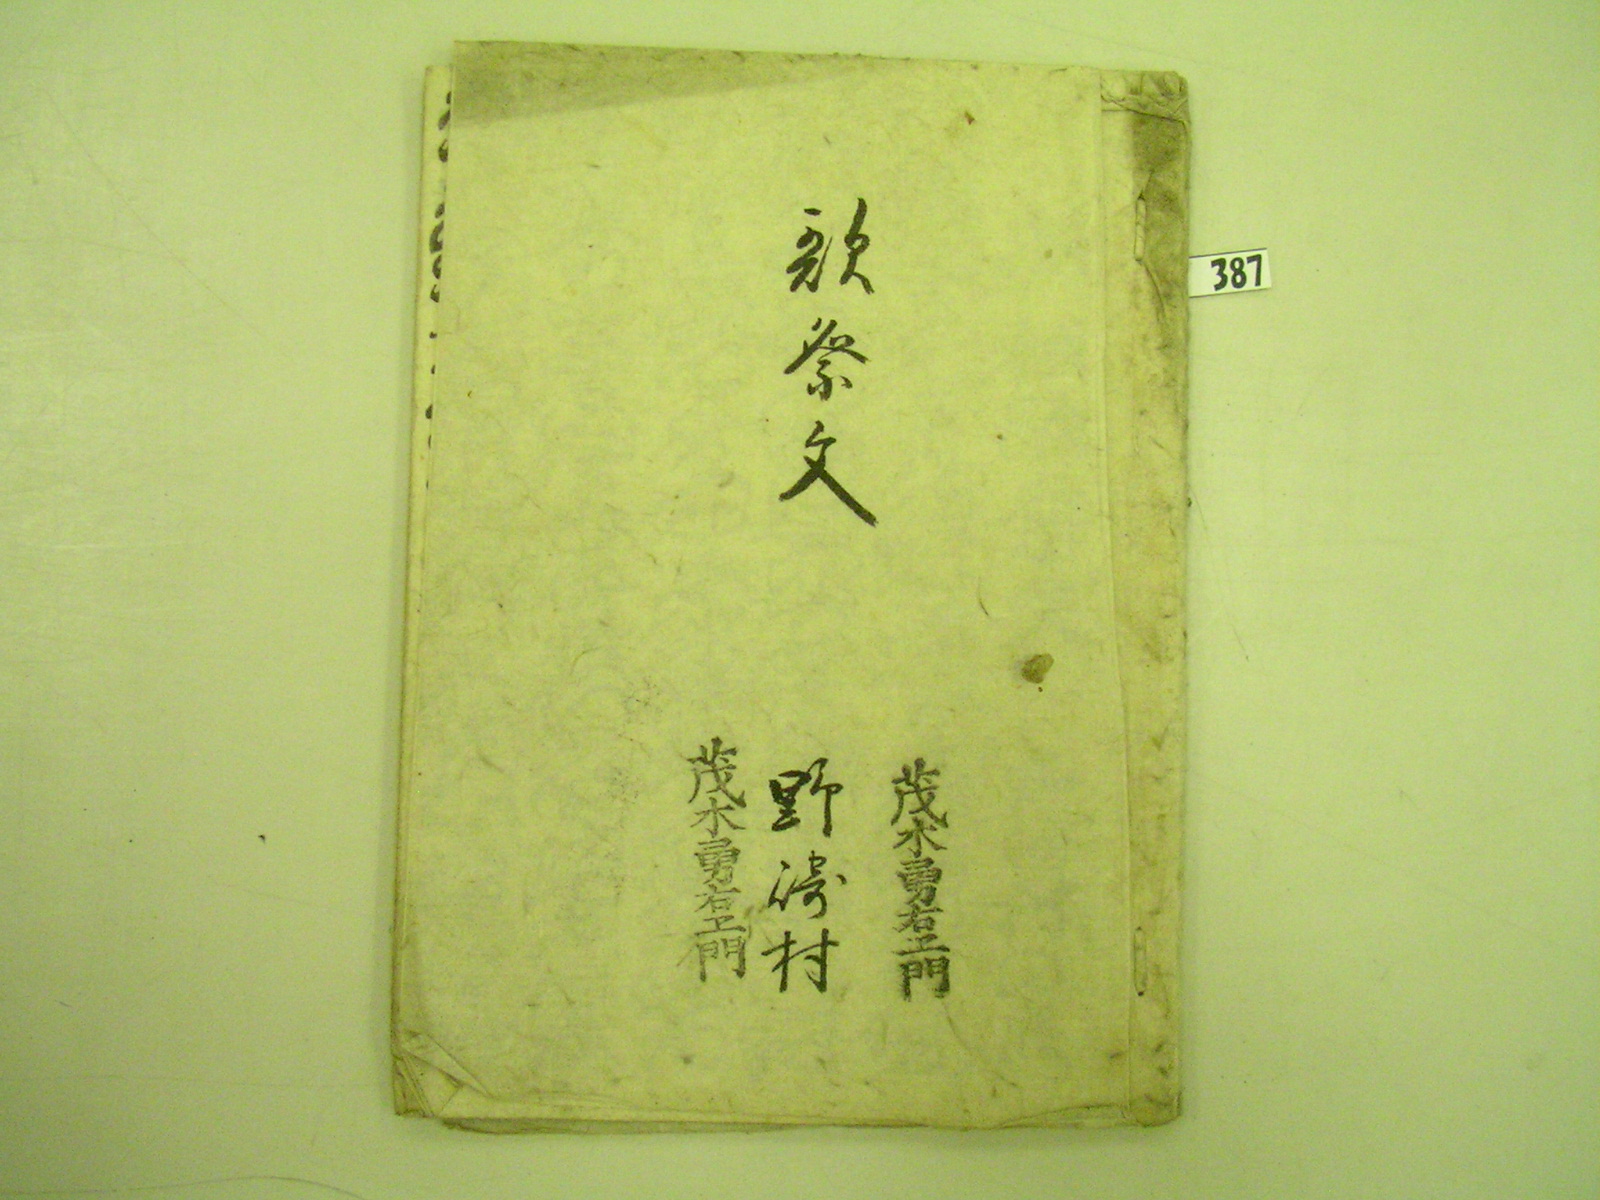 387
歌祭文
茂木勇右エ門
野崎村
茂木勇右エ門